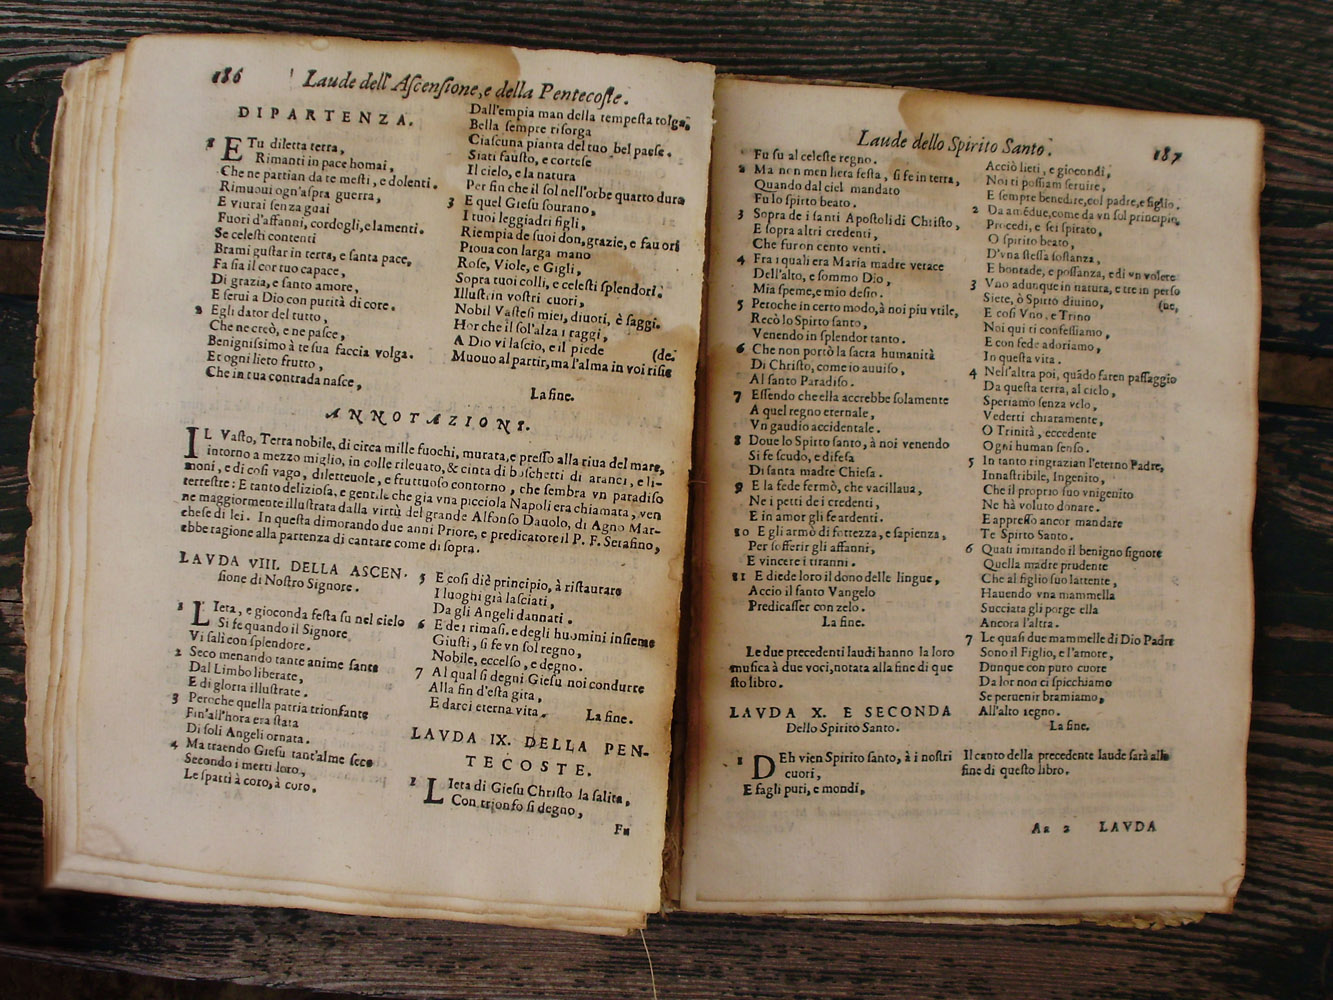 186
Laude dell'Ascensione, e della Pentecoste.
DIPARTENZA.
1 E Tu diletta terra,
Rimanti in pace homai,
Che ne partian da te mesti, e dolenti.
Rimuoui ogn'aspra guerra,
E viurai senza guai
Fuori d'affanni, cordogli, e lamenti.
Se celesti contenti
Brami gustar in terra, e santa pace,
Fa sia il cor tuo capace,
Di grazia, e santo amore,
E serui a Dio con purità di core.
2 Egli dator del tutto,
Che ne creò, e ne pasce,
Benignissimo à te sua faccia volga.
Et ogni lieto frutto,
Che in tua contrada nasce,
Dall'empia man della tempesta tolga.
Bella sempre risorga
Ciascuna pianta del tuo bel paese.
Siati fausto, e cortese
Il cielo, e la natura
Per fin che il sol nell'orbe quarto dura
3 E quel Giesu sourano,
I tuoi leggiadri figli,
Riempia de suoi don, grazie, e fauori
Pioua con larga mano
Rose, Viole, e Gigli,
Sopra tuoi colli, e celesti splendori.
Illustri in vostri cuori,
Nobil Vastesi miei, diuoti, è saggi.
Hor che il sol'alza i raggi,
A Dio vi lascio, e il piede (de.
Muouo al partir, ma l'alma in voi risie
La fine.
ANNOTAZIONI.
IL Vasto, Terra nobile, di circa mille fuochi, murata, e presso alla riua del mare,
intorno a mezzo miglio, in colle rileuato, & cinta di boschetti di aranci, e li-
moni, e di così vago, diletteuole, e fruttuoso contorno, che sembra vn paradiso
terrestre: E tanto deliziosa, e gentile che gia vna picciola Napoli era chiamata, ven
ne maggiormente illustrata dalla virtù del grande Alfonso Dauolo, di Agno Mar-
chese di lei. In questa dimorando due anni Priore, e predicatore il P. F. Serafino,
ebbe ragione alla partenza di cantare come di sopra.
LAVDA VIII. DELLA ASCEN-
sione di Nostro Signore.
1 LIeta, e gioconda festa su nel cielo
Si fe quando il Signore
Vi sali con splendore.
2 Seco menando tante anime sante
Dal Limbo liberate,
E di gloria illustrate.
3 Peroche quella patria trionfante
Fin'all'hora era stata
Di soli Angeli ornata.
4 Ma traendo Giesu tant'alme seco
Secondo i metti loro,
Le sparti à coro, à coro.
5 E così diè principio, à ristaurare
I luoghi già lasciati,
Da gli Angeli dannati.
6 E de i rimasi. e degli huomini insieme
Giusti, si fe vn sol regno,
Nobile, eccelso, e degno.
7 Al qual si degni Giesu noi condurre
Alla fin d'esta gita,
E darci eterna vita.
La fine.
LAVDA IX. DELLA PEN-
TECOSTE.
1 LIeta di Giesu Christo la salita,
Con trionfo si degno,
Fu
Laude dello Spirito Santo.
187
Fu su al celeste regno.
2 Ma non men lieta festa, si fe in terra,
Quando dal ciel mandato
Fu lo spirto beato.
3 Sopra de i santi Apostoli di Christo,
E sopra altri credenti,
Che furon cento venti.
4 Fra i quali era Maria madre verace
Dell'alto, e sommo Dio,
Mia speme, e mio desio.
5 Peroche in certo modo, à noi piu vtile,
Recò lo Spirto santo,
Venendo in splendor tanto.
6 Che non portò la sacra humanità
Di Christo, come io auuiso,
Al santo Paradiso.
7 Essendo che ella accrebbe solamente
A quel regno eternale,
Vn gaudio accidentale.
8 Doue lo Spirto santo, à noi venendo
Si fe scudo, e difesa
Di santa madre Chiesa.
9 E la fede fermò, che vacillaua,
Ne i petti de i credenti,
E in amor gli fe ardenti.
10 E gli armò di fortezza, e sapienza,
Per sofferir gli affanni,
E vincere i tiranni.
11 E diede loro il dono delle lingue,
Accio il santo Vangelo
Predicasser con zelo.
La fine.
Le due precedenti laudi hanno la loro
musica à due voci, notata alla fine di que
sto libro.
LAVDA X. E SECONDA
Dello Spirito Santo.
1 DEh vien Spirito santo, à i nostri
cuori,
E fagli puri, e mondi,
Acciò lieti, e giocondi,
Noi ti possiam seruire,
E sempre benedire, col padre, e figlio.
2 Da amédue, come da vn sol principio,
Procedi, e sei spirato,
O spirito beato,
D'vna stessa sostanza,
E bontade, e possanza, e di vn volere
3 Vno adunque in natura, e tre in perso
Siete, ò Spirto diuino, (ne,
E così Vno, e Trino
Noi qui ti confessiamo,
E con fede adoriamo,
In questa vita.
4 Nell'altra poi, quãdo faren passaggio
Da questa terra, al cielo,
Speriamo senza velo,
Vederti chiaramente,
O Trinità, eccedente
Ogni human senso.
5 In tanto ringrazian l'eterno Padre,
Innastribile, Ingenito,
Che il proprio suo vnigenito
Ne hà voluto donare.
E appresso ancor mandare
Te Spirto Santo.
6 Quasi imitando il benigno signore
Quella madre prudente
Che al figlio suo lattente,
Hauendo vna mammella
Succiata gli porge ella
Ancora l'altra.
7 Le quasi due mammelle di Dio Padre
Sono il Figlio, e l'amore,
Dunque con puro cuore
Da lor non ci spicchiamo
Se peruenir bramiamo,
All'alto regno.
La fine.
Il canto della precedente laude sarà alla
fine di questo libro.
Aa 2 LAVDA